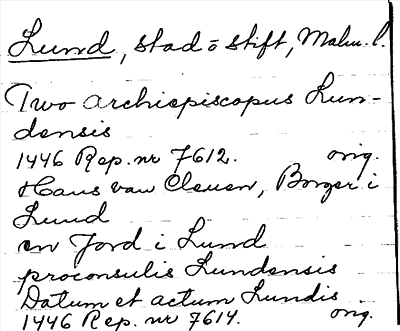 Lund, stad o stift, Malm. l.
Two archiepiscopus Lun-
densis
1446 Rep. nr 7612. orig.
Hans van Cleuen, Borger i
Lund
en Jord i Lund
proconsulis Lundensis
Datum et actum Lundis
1446 Rep. nr 7614. orig.